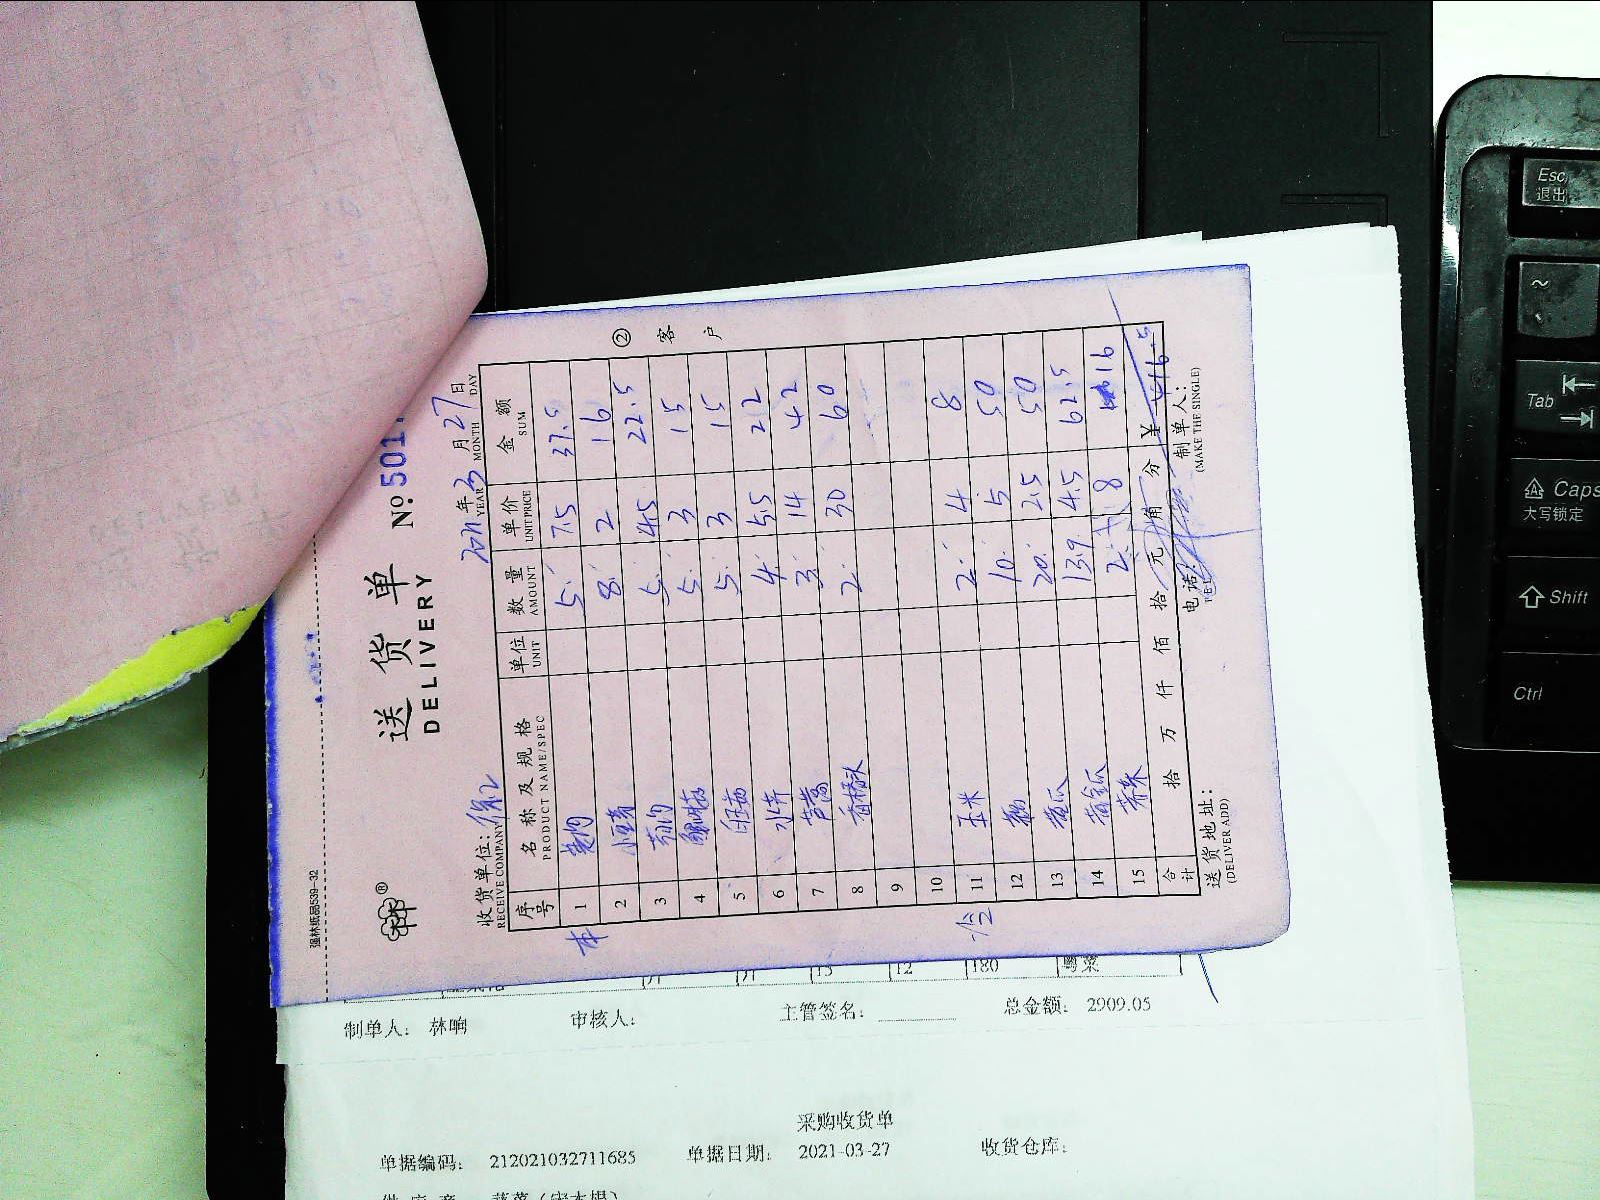 强林纸品539-32
送货单
DELIVERY
No. 501
收货单位:
RECEIVE COMPANY
2021年3月27日
YEAR MONTH DAY
序号 名称及规格 单位 数量 单价 金额
PRODUCT NAME/SPEC UNIT AMOUNT UNIT PRICE SUM
本
1 5. 7.5 37.5
2 8. 2 16
3 5. 4.5 22.5
4 5. 3 15
5 5. 3 15
6 水芹 4. 5.5 22
7 芦蒿 3. 14 42
8 2. 30 60
9
10
11 玉米 2. 4 8
12 10. 5 50
13 黄瓜 20. 2.5 50
14 13.9 4.5 62.5
15 2. 8 16
合计 拾 万 仟 佰 拾 元 角 分 ¥ 416.5
送货地址:
(DELIVER ADD)
电话:
制单人:
(MAKE THE SINGLE)
② 客户
15 12 180 粤菜
制单人: 林响 审核人: 主管签名: 总金额: 2909.05
采购收货单
单据编码: 212021032711685 单据日期: 2021-03-27 收货仓库:
Esc
退出
~
Tab
Caps
大写锁定
Shift
Ctrl